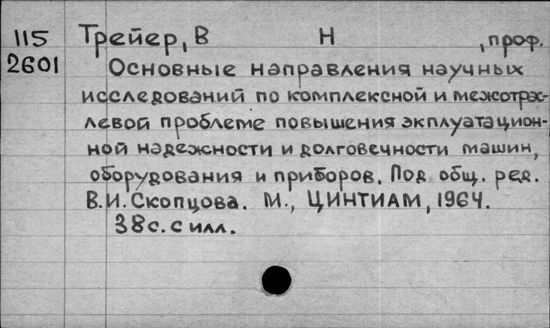 115 Трейер, В Н , проф.
2601 Основные направления научных
исследований по комплексной и межотрас-
левой проблеме повышения экплуатацион-
ной надежности и долговечности машин,
оборудования и приборов. Под общ. ред.
В.И. Скопцова. М., ЦИНТИАМ, 1964.
38 с. с илл.